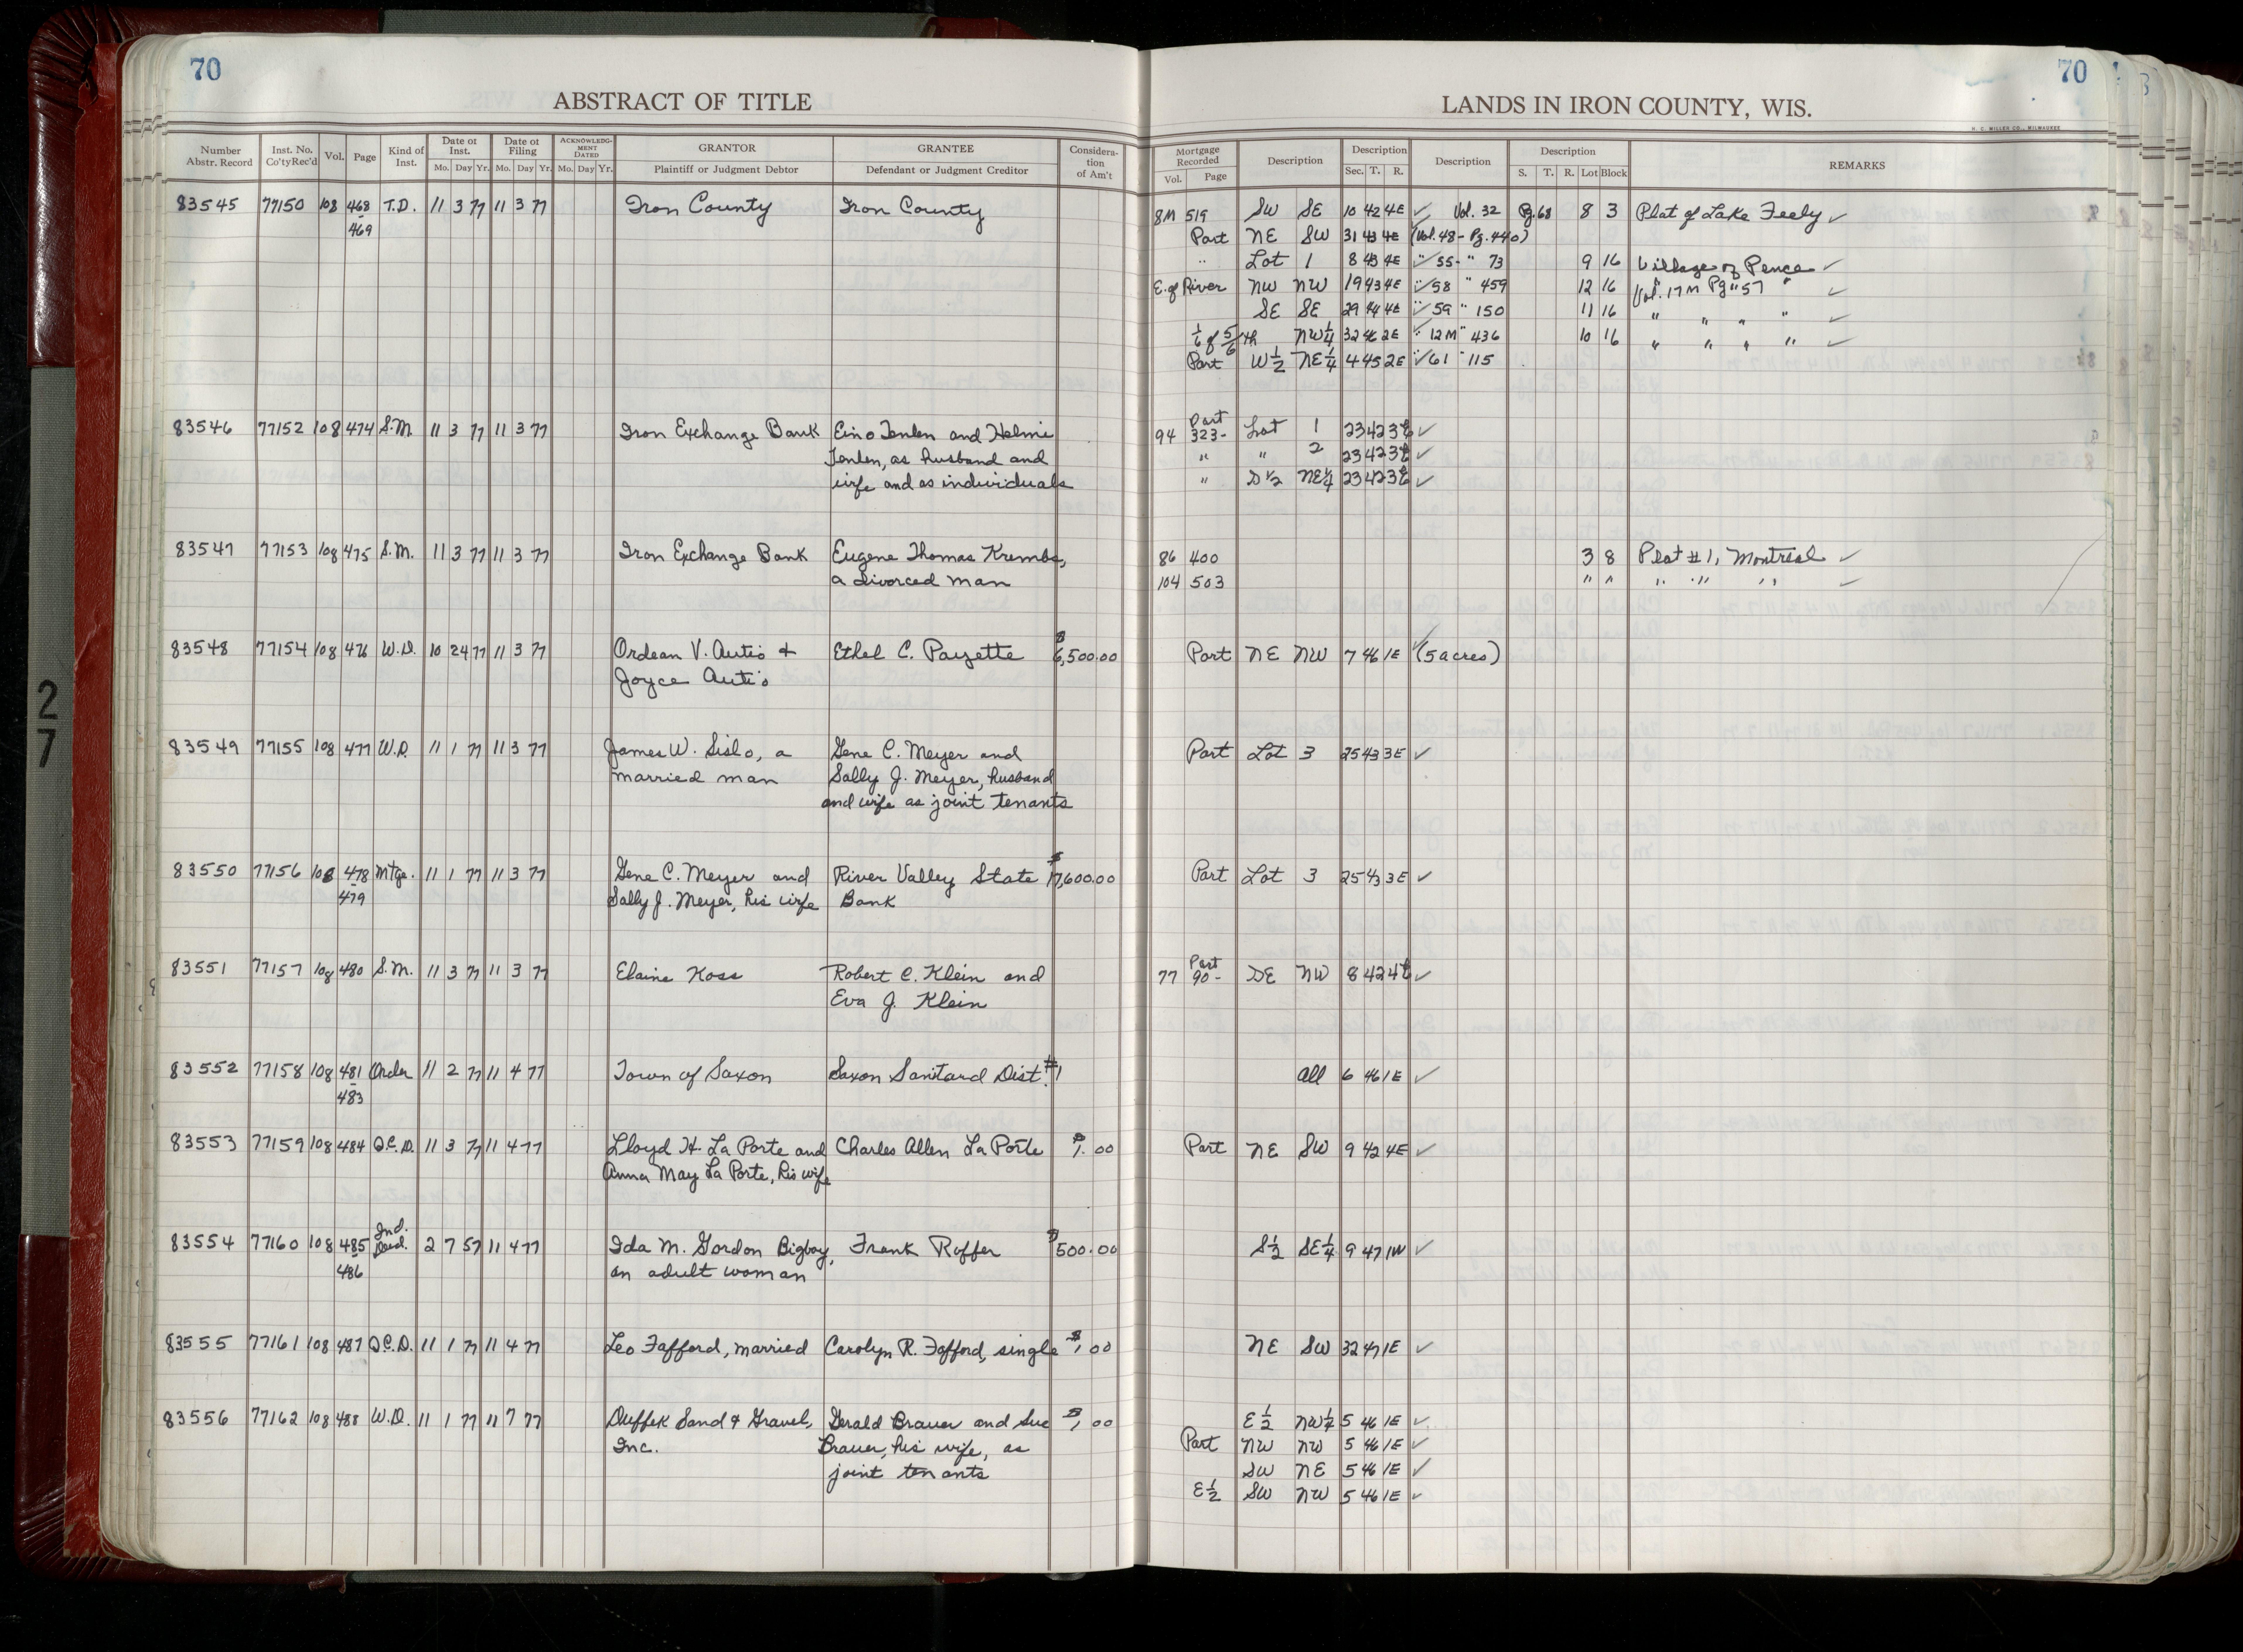 70
ABSTRACT OF TITLE
Number Abstr. Record | Inst. No. Co'ty Rec'd | Vol. | Page | Kind of Inst. | Date of Inst. Mo. Day Yr. | Date of Filing Mo. Day Yr. | ACKNOWLEDGMENT DATED Mo. Day Yr. | GRANTOR Plaintiff or Judgment Debtor | GRANTEE Defendant or Judgment Creditor | Consideration of Am't
83545 77150 108 468 T.D. 11 3 77 11 3 77 Iron County Iron County
469
83546 77152 108 474 S.M. 11 3 77 11 3 77 Iron Exchange Bank Eino Tenlen and Helmi
Tenlen, as husband and
wife and as individuals
83547 77153 108 475 S.M. 11 3 77 11 3 77 Iron Exchange Bank Eugene Thomas Krembs,
a divorced man
83548 77154 108 476 W.D. 10 24 77 11 3 77 Ordean V. Autio + Ethel C. Payette $6,500.00
Joyce Autio
83549 77155 108 477 W.D. 11 1 77 11 3 77 James W. Sislo, a Gene C. Meyer and
married man Sally J. Meyer, husband
and wife as joint tenants
83550 77156 108 478 Mtge. 11 1 77 11 3 77 Gene C. Meyer and River Valley State $17,600.00
479 Sally J. Meyer, his wife Bank
83551 77157 108 480 S.M. 11 3 77 11 3 77 Elaine Koss Robert C. Klein and
Eva J. Klein
83552 77158 108 481 Order 11 2 77 11 4 77 Town of Saxon Saxon Sanitard Dist. #1
483
83553 77159 108 484 Q.C.D. 11 3 77 11 4 77 Lloyd H. La Porte and Charles Allen La Porte $1.00
Anna May La Porte, his wife
83554 77160 108 485 Ind. Deed. 2 7 57 11 4 77 Ida M. Gordon Bigboy, Frank Roffer $500.00
486 an adult woman
83555 77161 108 487 Q.C.D. 11 1 77 11 4 77 Leo Fafford, married Carolyn R. Fafford, single $1.00
83556 77162 108 488 W.D. 11 1 77 11 7 77 Duffek Sand & Gravel, Gerald Brauer and Sue $1.00
Inc. Brauer, his wife, as
joint tenants
70
LANDS IN IRON COUNTY, WIS.
H. C. MILLER CO., MILWAUKEE
Mortgage Recorded Vol. Page | Description | Description Sec. T. R. | Description | Description S. T. R. Lot Block | REMARKS
8M 519 SW SE 10 42 4E ✓ Vol. 32 Pg. 68 8 3 Plat of Lake Feely ✓
Part NE SW 31 43 4E (Vol. 48 - Pg. 440)
" Lot 1 8 43 4E ✓ " 55 - " 73 9 16 Village of Pence ✓
E. of River NW NW 19 43 4E ✓ " 58 " 459 12 16 Vol. 17M Pg 57 ✓
SE SE 29 44 4E ✓ " 59 " 150 11 16 " " " " ✓
1/6 of 5/6 th NW 1/4 32 46 2E " 12M " 436 10 16 " " " " ✓
Part W 1/2 NE 1/4 4 45 2E ✓ " 61 " 115
94 Part 323- Lot 1 23 42 3E ✓
" " 2 23 42 3E ✓
" S 1/2 NE 1/4 23 42 3E ✓
86 400 3 8 Plat #1, Montreal ✓
104 503 " " " " " ✓
Part NE NW 7 46 1E ✓ (5 acres)
Part Lot 3 25 43 3E ✓
Part Lot 3 25 43 3E ✓
77 Part 90- SE NW 8 42 4E ✓
All 6 46 1E ✓
Part NE SW 9 42 4E ✓
S 1/2 SE 1/4 9 47 1W ✓
NE SW 32 47 1E ✓
E 1/2 NW 1/4 5 46 1E ✓
Part NW NW 5 46 1E ✓
SW NE 5 46 1E ✓
E 1/2 SW NW 5 46 1E ✓
27